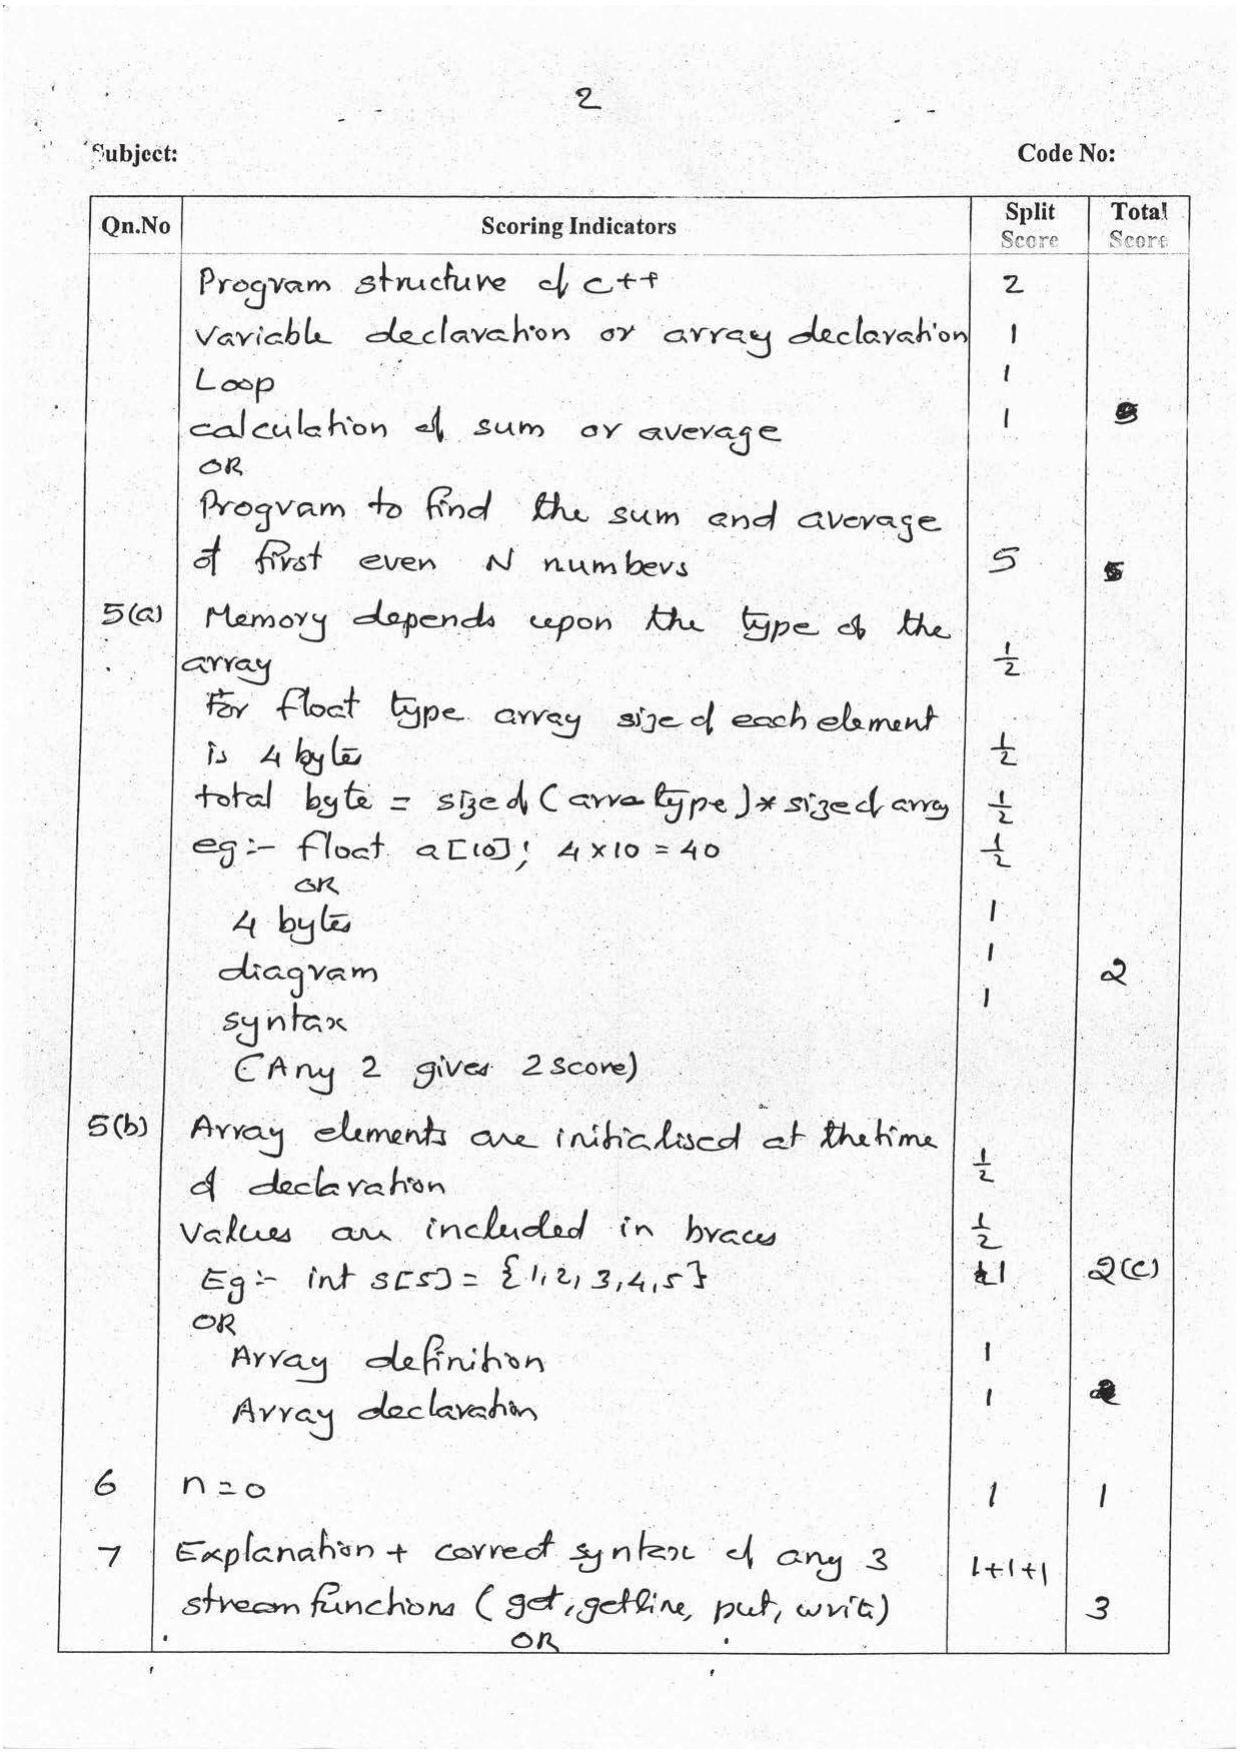 2
Subject: Code No:
Qn.No Scoring Indicators Split Score Total Score
Program structure of C++ 2
Variable declaration or array declaration 1
Loop 1
calculation of sum or average 1
OR
Program to find the sum and average
of first even N numbers 5 5
5(a) Memory depends upon the type of the
array 1/2
For float type array size of each element
is 4 bytes 1/2
total byte = sizeof (arra type) * sizeof array 1/2
eg:- float a[10]; 4 x 10 = 40 1/2
OR
4 bytes 1
diagram 1 2
syntax 1
(Any 2 gives 2 score)
5(b) Array elements are initialised at the time
of declaration 1/2
Values are included in braces 1/2
Eg:- int s[5] = {1, 2, 3, 4, 5} 1 2(c)
OR
Array definition 1
Array declaration 1
6 n=0 1 1
7 Explanation + correct syntax of any 3 1+1+1
stream functions (get, getline, put, write) 3
OR